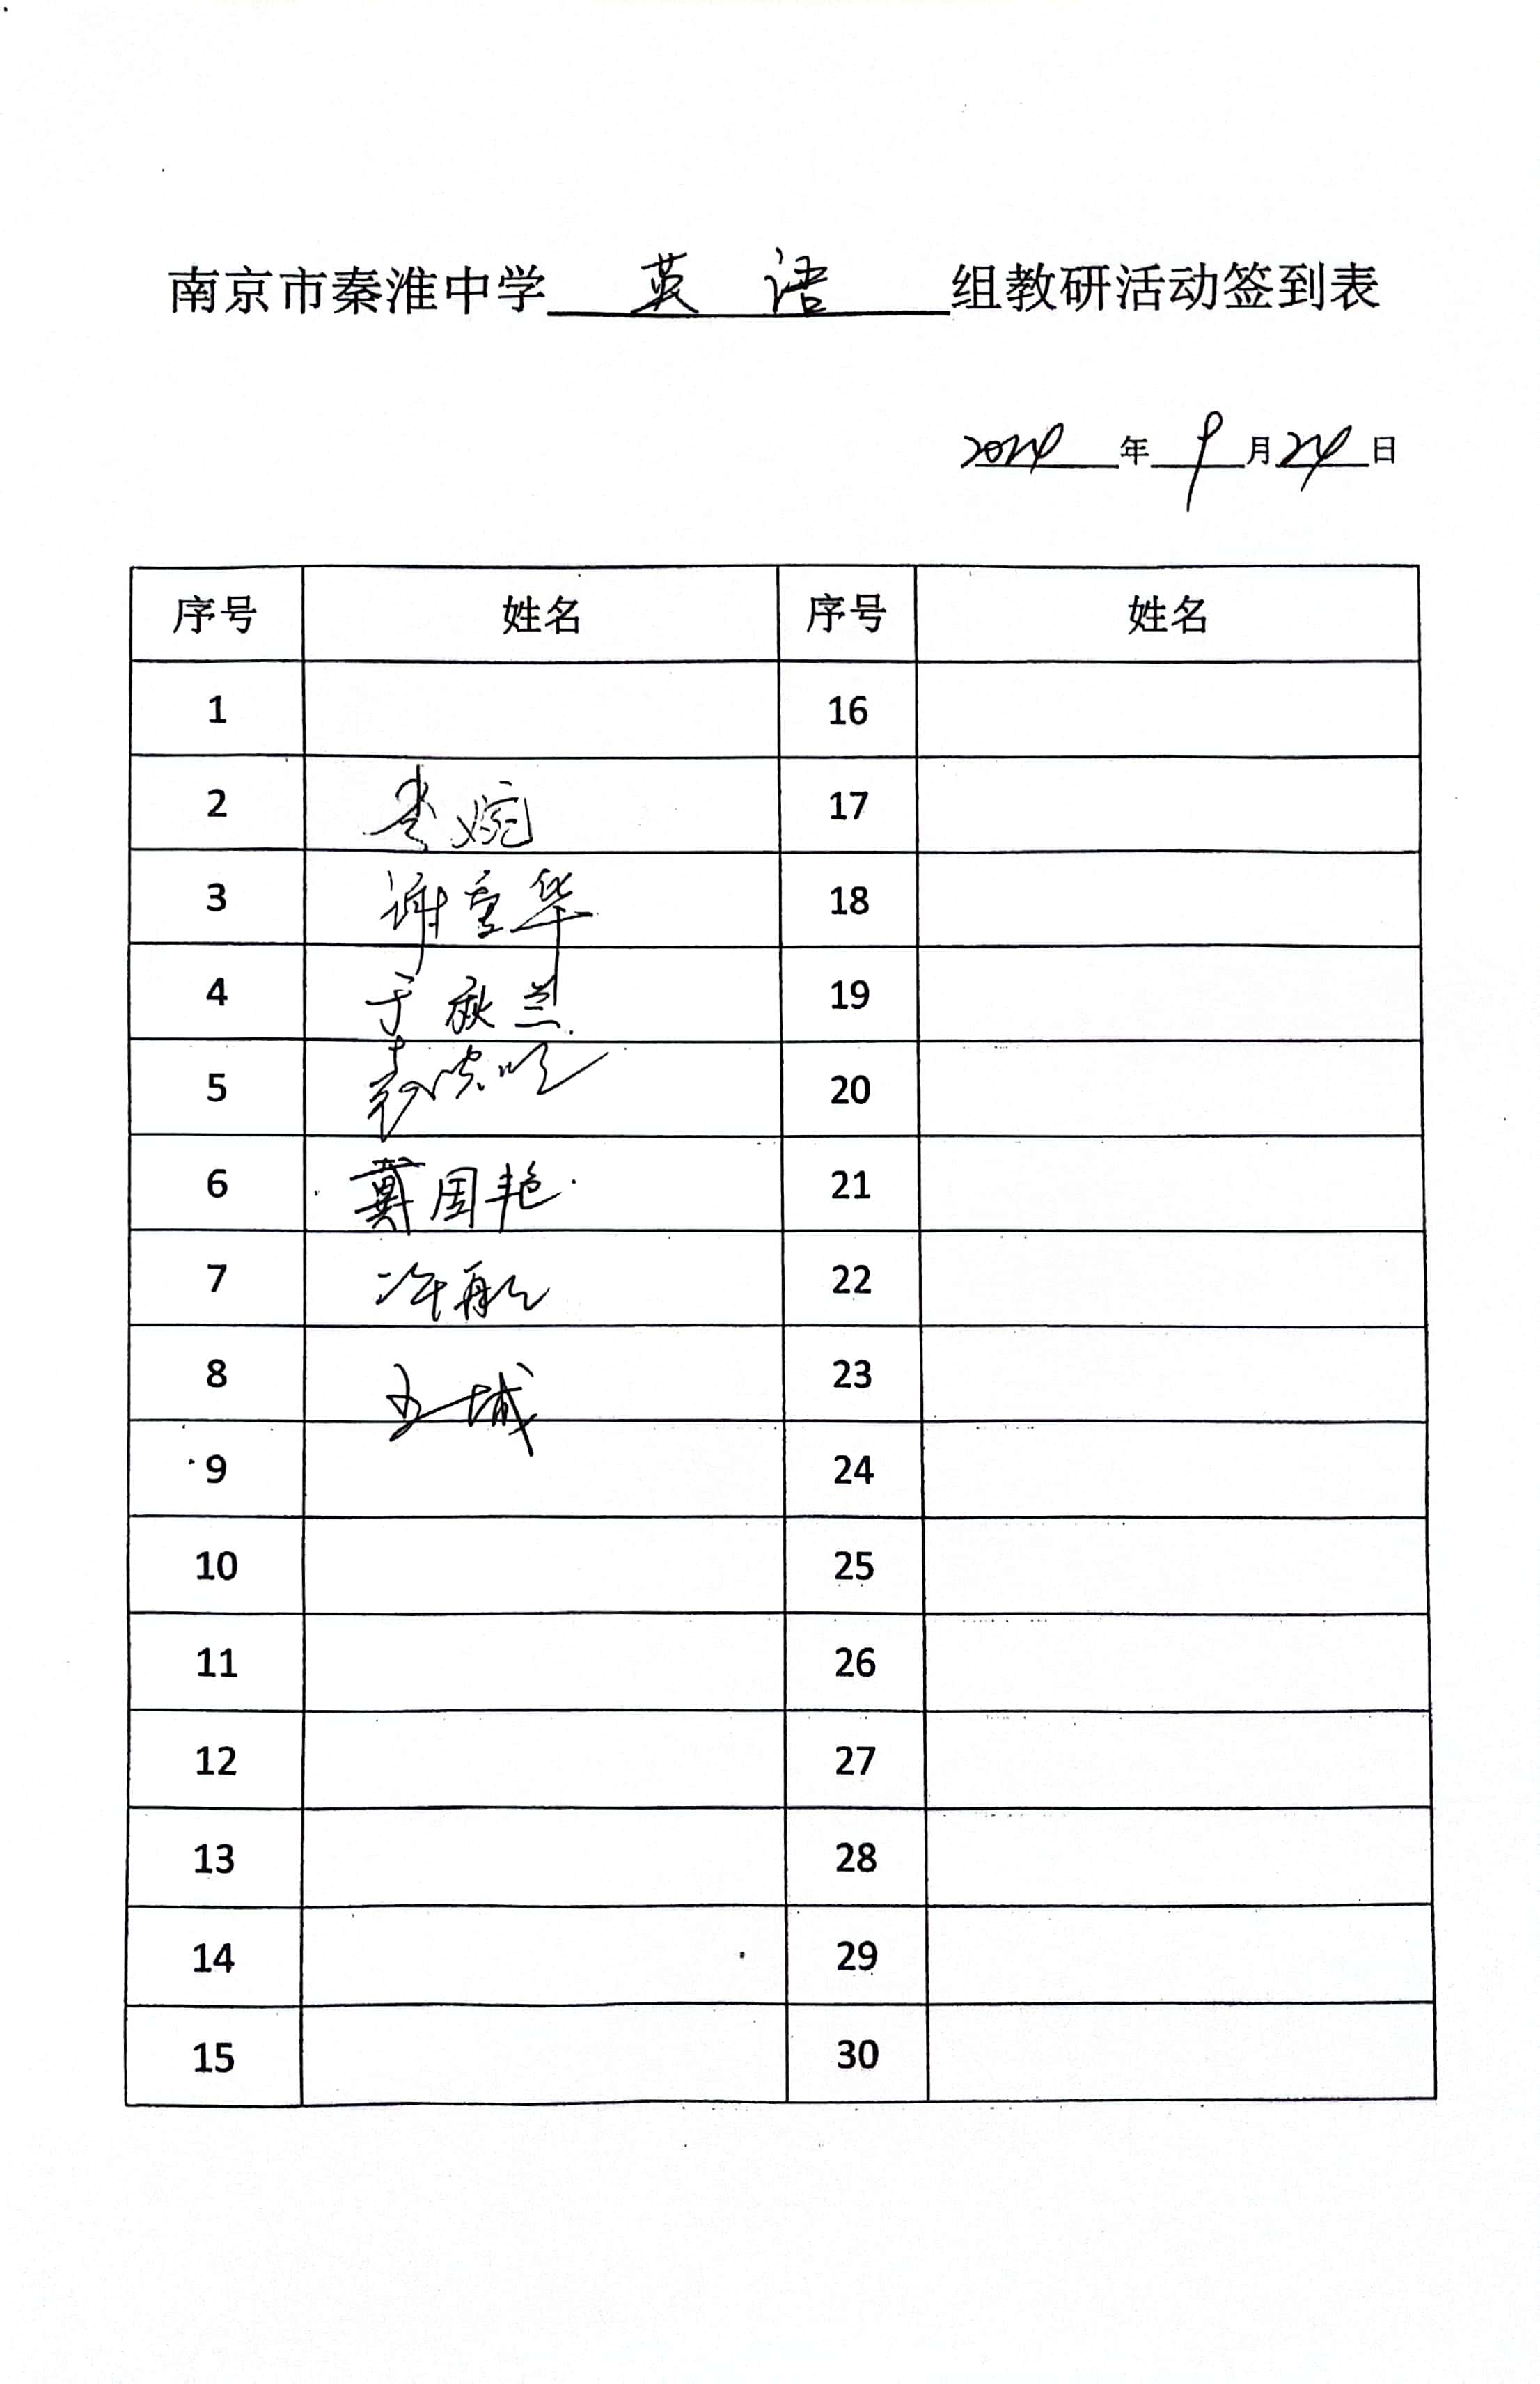 南京市秦淮中学 英语 组教研活动签到表
2024 年 9 月 24 日
序号 姓名 序号 姓名
1 16
2 李婉 17
3 谢重华 18
4 于秋兰 19
5 20
6 戴国艳 21
7 22
8 23
9 24
10 25
11 26
12 27
13 28
14 29
15 30